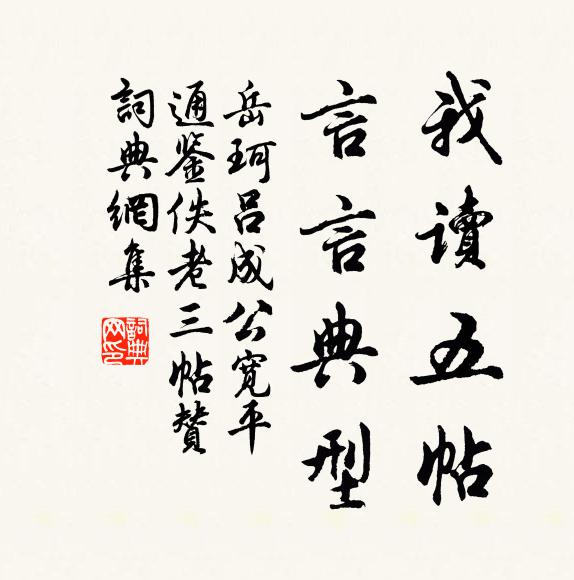 我讀五帖
言言典型
岳珂呂成公寬平
通鉴佚老三帖贊
詞典網集
詞典
网印